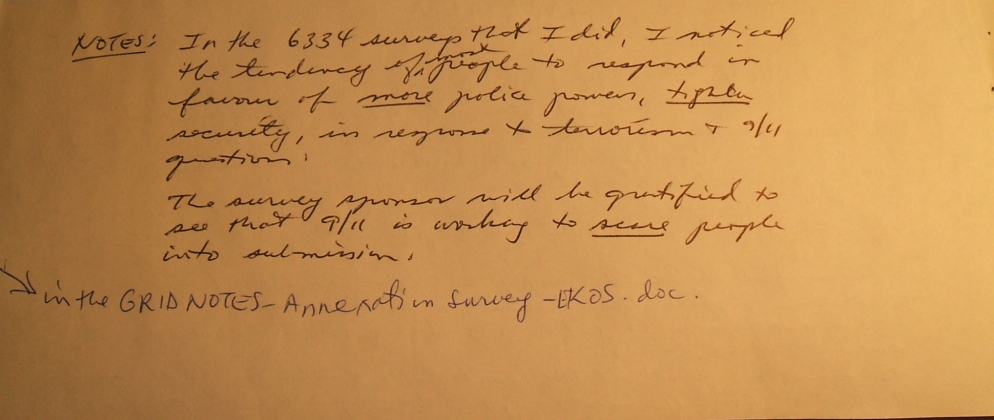 NOTES: In the 6334 surveys that I did, I noticed
the tendency of most people to respond in
favour of more police powers, tighter
security, in response to terrorism + 9/11
questions.
The survey sponsor will be gratified to
see that 9/11 is working to scare people
into submission.
in the GRID NOTES - Annexation Survey - EKOS.doc.